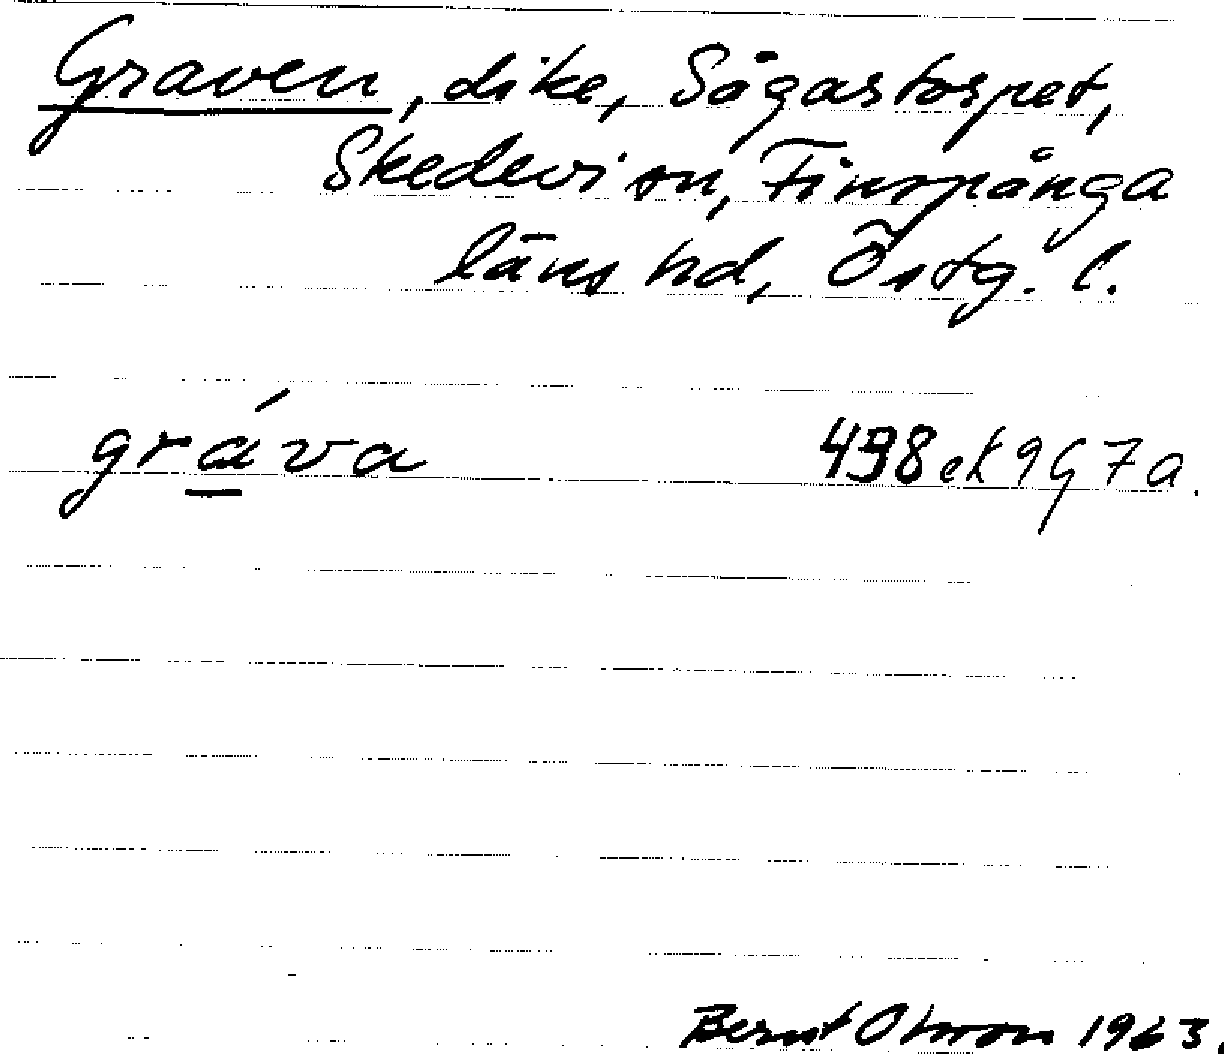 Graven, dike, Sågarstorpet,
Skedevi sn, Finspånga
läns hd, Östg. l.
gráva 498 ek 9 G 7 a.
Bernt Olsson 1963.